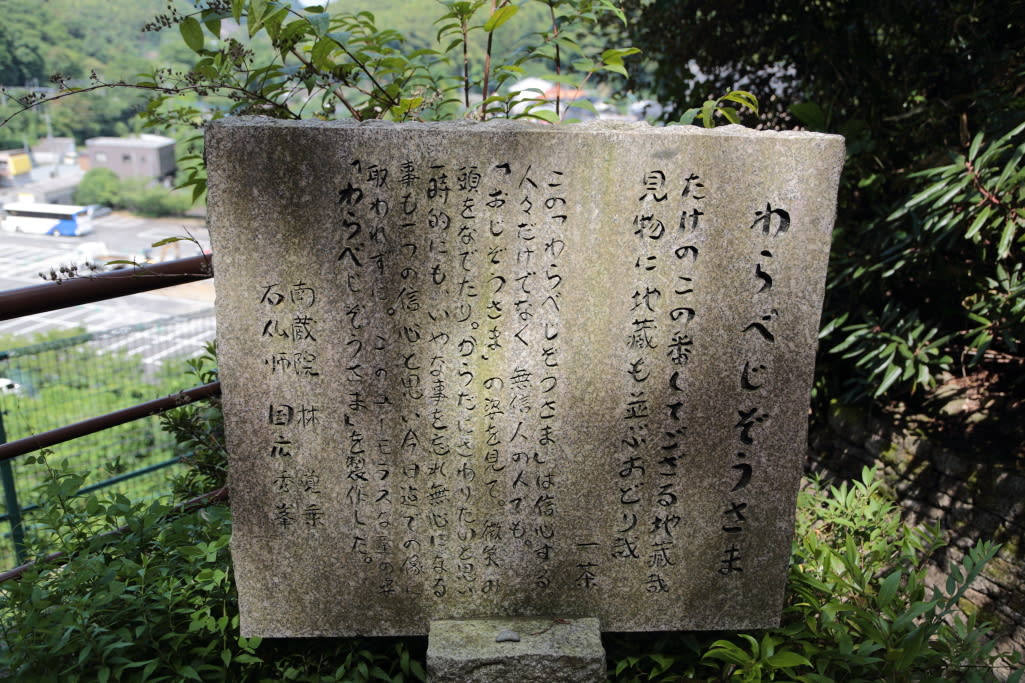 わらべじぞうさま
たけのこの番してござる地蔵哉
見物に地蔵も並ぶおどり哉
一茶
この「わらべじぞうさま」は信心する
人々だけでなく 無信人の人でも。
「おじぞうさま」の姿を見て。微笑み
頭をなでたり。がうたにさわりたいと思い
一時的にも、いやな事を忘れ無心になる
事も一つの信心と思い今日迄での像に
取われずに。このユーモラスな童の姿
「わらべじぞうさま」を製作した。
南蔵院 林 覚乗
石仏師 国広秀峯